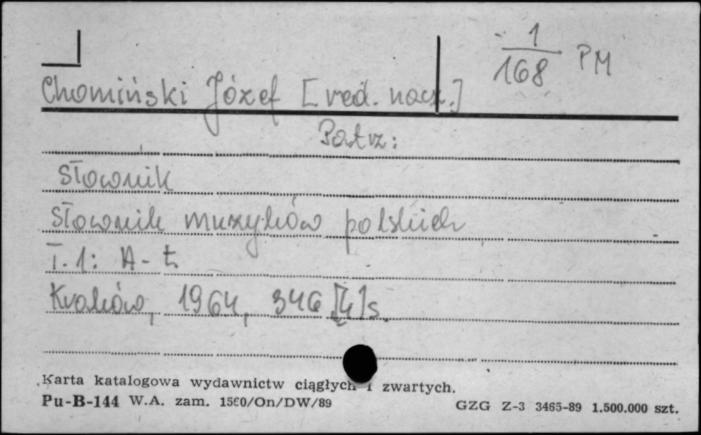 1
168 PM
Chomiński Józef [red. nacz.]
Patrz:
Słownik
Słownik muzyków polskich
T. 1: A-Ł
Kraków, 1964, 346 [4] s.
Karta katalogowa wydawnictw ciągłych i zwartych.
Pu-B-144 W.A. zam. 1560/On/DW/89 GZG Z-3 3465-89 1.500.000 szt.